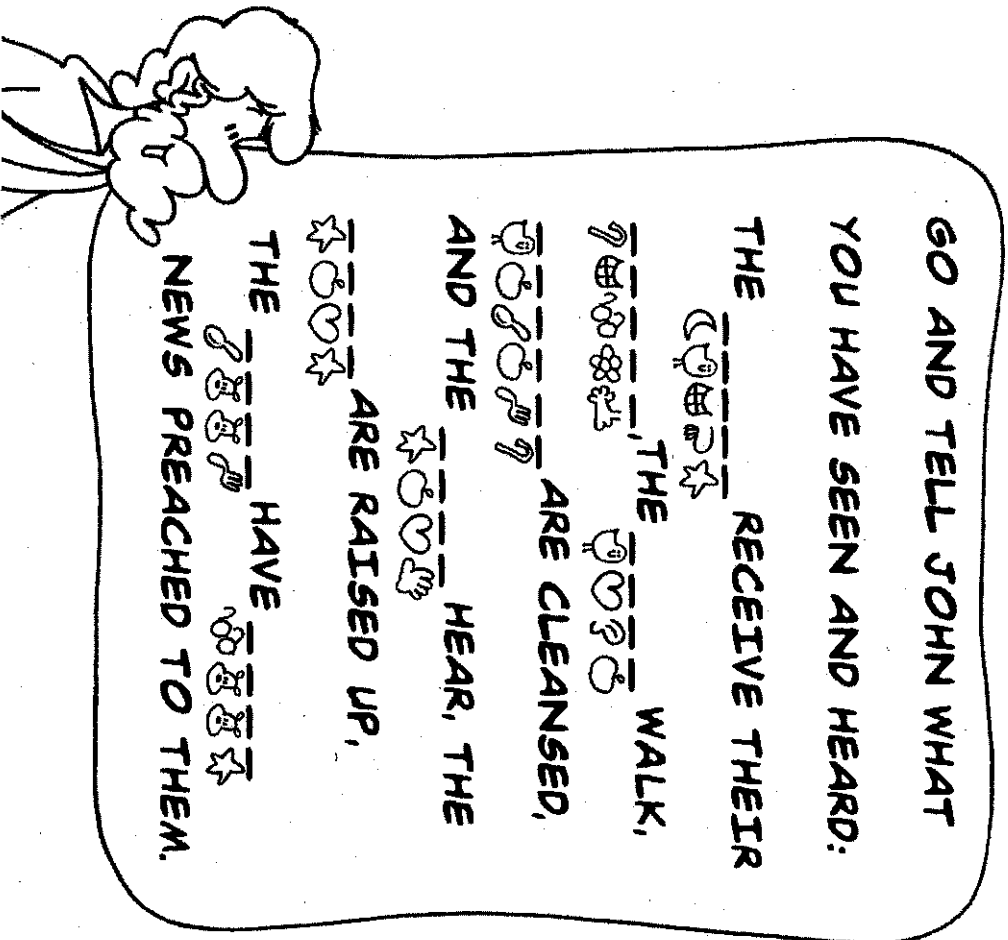 GO AND TELL JOHN WHAT
YOU HAVE SEEN AND HEARD:
THE _ _ _ _ _ RECEIVE THEIR
_ _ _ _ _, THE _ _ _ _ WALK,
_ _ _ _ _ _ ARE CLEANSED,
AND THE _ _ _ _ HEAR, THE
_ _ _ _ ARE RAISED UP,
THE _ _ _ _ HAVE _ _ _ _
NEWS PREACHED TO THEM.